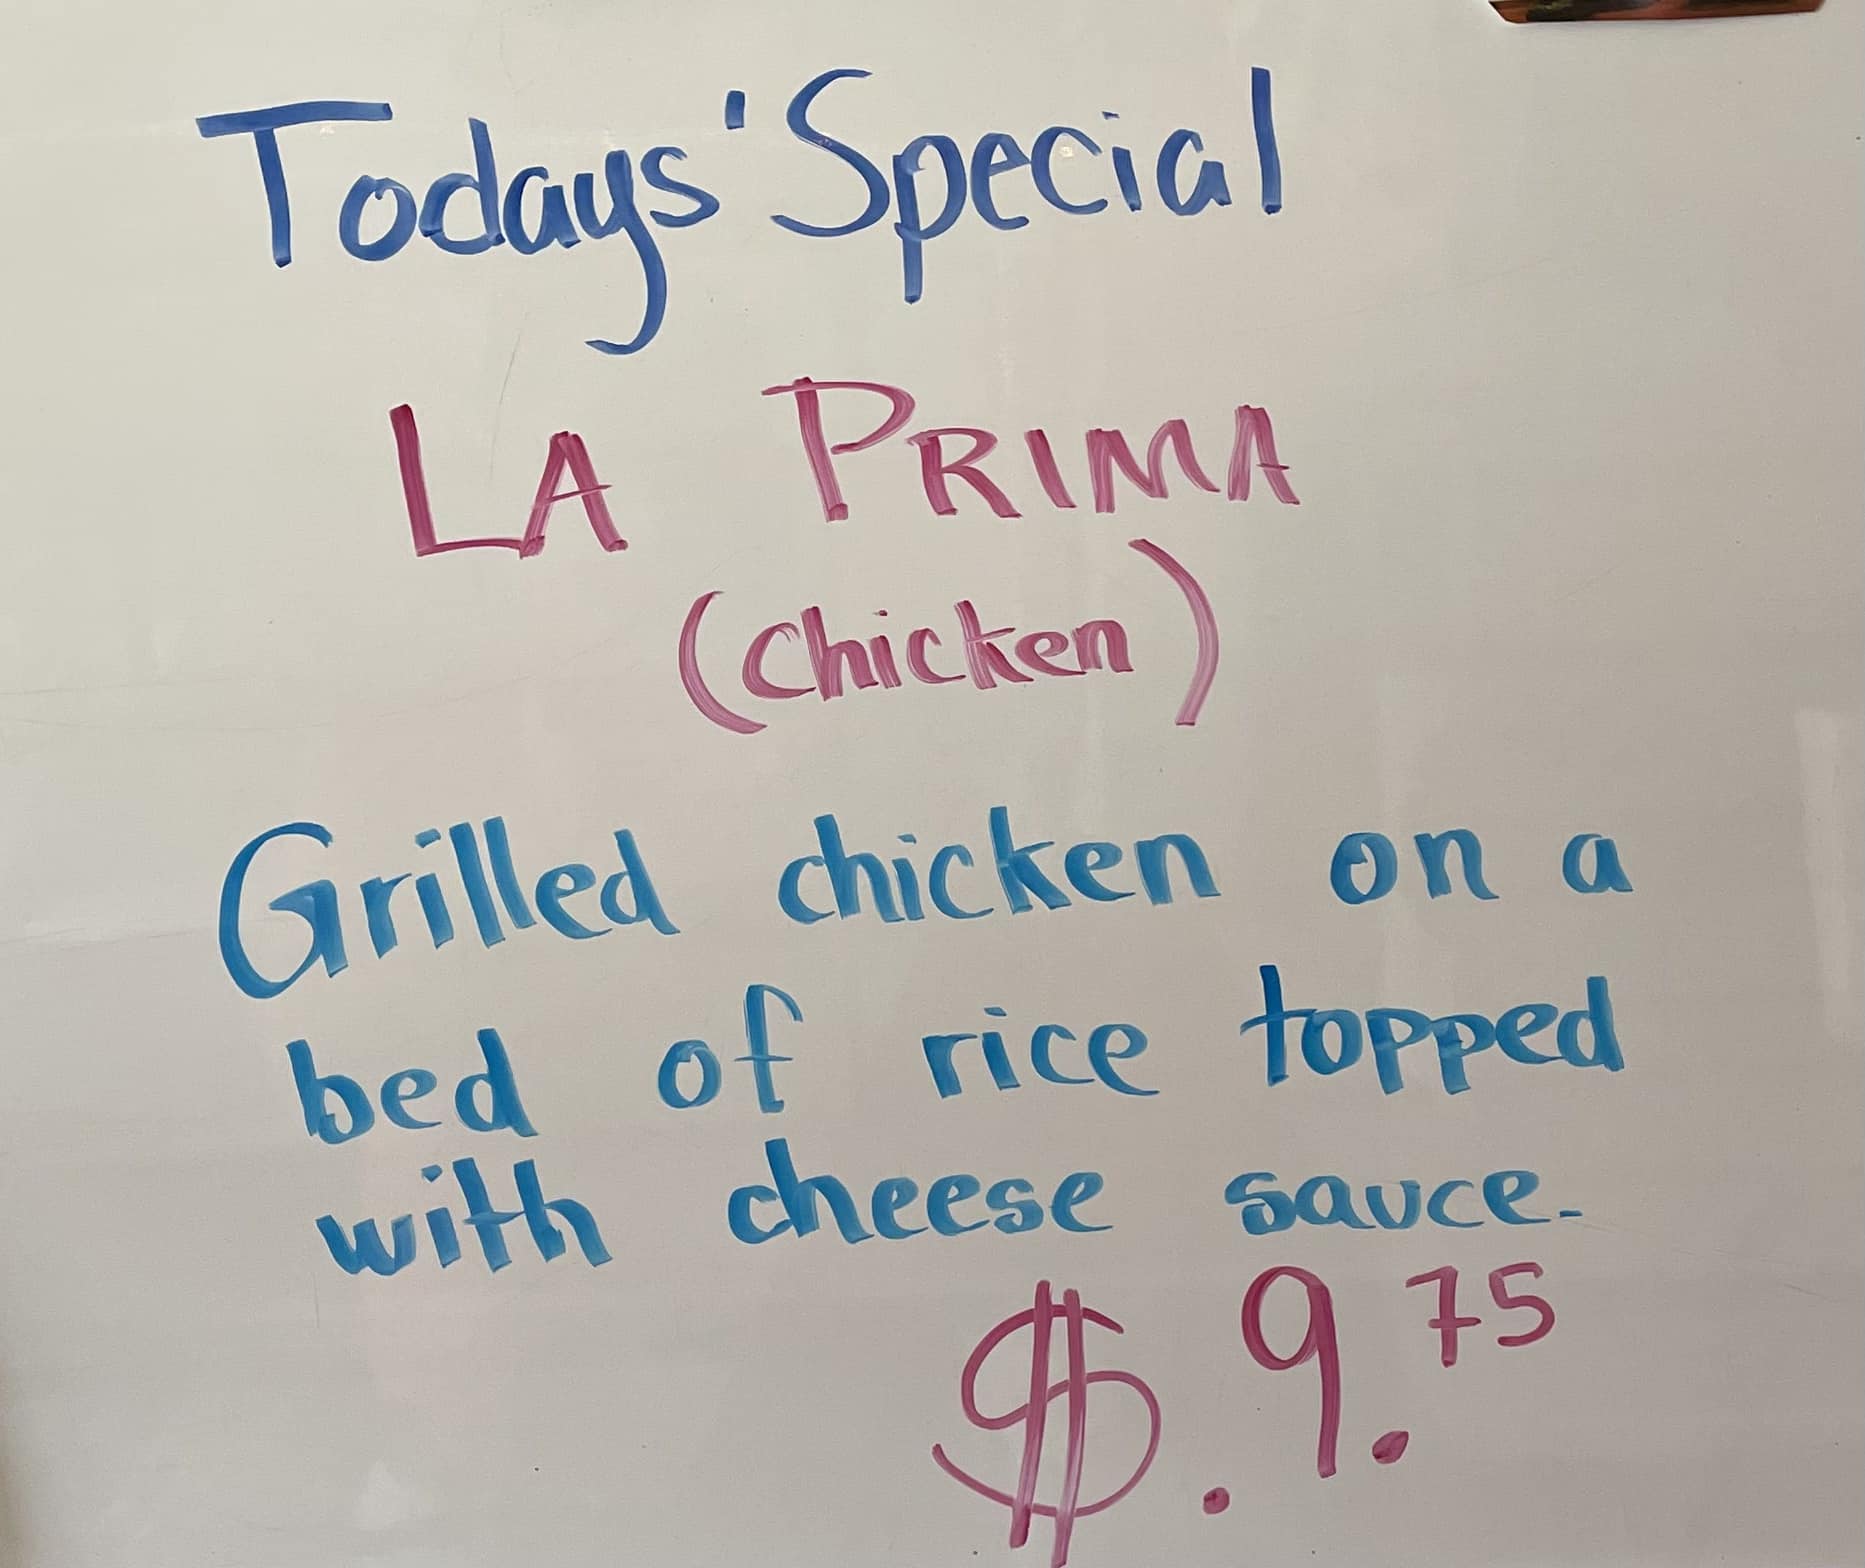 Todays' Special
LA PRIMA
(Chicken)
Grilled chicken on a
bed of rice topped
with cheese sauce.
$.9.75